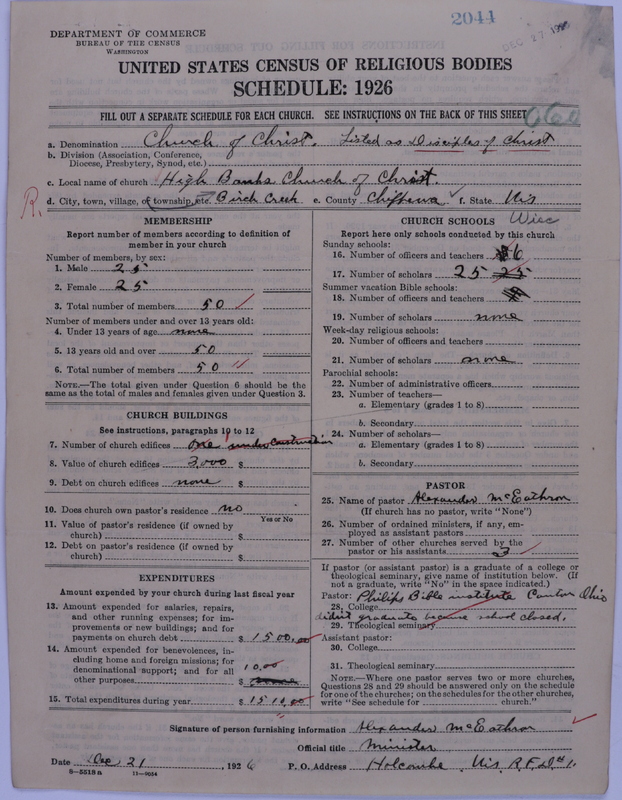 2044
DEC 27 1926
DEPARTMENT OF COMMERCE
BUREAU OF THE CENSUS
WASHINGTON
UNITED STATES CENSUS OF RELIGIOUS BODIES
SCHEDULE: 1926
FILL OUT A SEPARATE SCHEDULE FOR EACH CHURCH. SEE INSTRUCTIONS ON THE BACK OF THIS SHEET
060
a. Denomination Church of Christ. Listed as Disciples of Christ
b. Division (Association, Conference,
Diocese, Presbytery, Synod, etc.)
c. Local name of church High Banks Church of Christ.
R. d. City, town, village, or township, etc. Birch Creek e. County Chippewa f. State Wis
Wisc
MEMBERSHIP
Report number of members according to definition of
member in your church
Number of members, by sex:
1. Male 25
2. Female 25
3. Total number of members 50
Number of members under and over 13 years old:
4. Under 13 years of age none
5. 13 years old and over 50
6. Total number of members 50
NOTE.—The total given under Question 6 should be the
same as the total of males and females given under Question 3.
CHURCH BUILDINGS
See instructions, paragraphs 10 to 12
7. Number of church edifices one under construction
8. Value of church edifices 3,000 $
9. Debt on church edifices none $
10. Does church own pastor's residence no
Yes or No
11. Value of pastor's residence (if owned by
church) $
12. Debt on pastor's residence (if owned by
church) $
EXPENDITURES
Amount expended by your church during last fiscal year
13. Amount expended for salaries, repairs,
and other running expenses; for im-
provements or new buildings; and for
payments on church debt $ 1500.00
14. Amount expended for benevolences, in-
cluding home and foreign missions; for
denominational support; and for all 10.00
other purposes $
15. Total expenditures during year $ 1510.00
CHURCH SCHOOLS
Report here only schools conducted by this church
Sunday schools:
16. Number of officers and teachers 6
17. Number of scholars 25 25
Summer vacation Bible schools:
18. Number of officers and teachers
19. Number of scholars none
Week-day religious schools:
20. Number of officers and teachers
21. Number of scholars none
Parochial schools:
22. Number of administrative officers
23. Number of teachers—
a. Elementary (grades 1 to 8)
b. Secondary
24. Number of scholars—
a. Elementary (grades 1 to 8)
b. Secondary
PASTOR
25. Name of pastor Alexander McEathron
(If church has no pastor, write "None")
26. Number of ordained ministers, if any, em-
ployed as assistant pastors
27. Number of other churches served by the
pastor or his assistants 3
If pastor (or assistant pastor) is a graduate of a college or
theological seminary, give name of institution below. (If
not a graduate, write "No" in the space indicated.)
Pastor: Philips Bible institute Canton Ohio
28. College
didn't graduate because school closed.
29. Theological seminary
Assistant pastor:
30. College
31. Theological seminary
NOTE.—Where one pastor serves two or more churches,
Questions 28 and 29 should be answered only on the schedule
for one of the churches; on the schedules for the other churches,
write "See schedule for church."
Signature of person furnishing information Alexander McEathron
Official title Minister
Date Dec 21, 1926 P. O. Address Holcombe Wis R.F.D #1.
8—5518a 11—9034